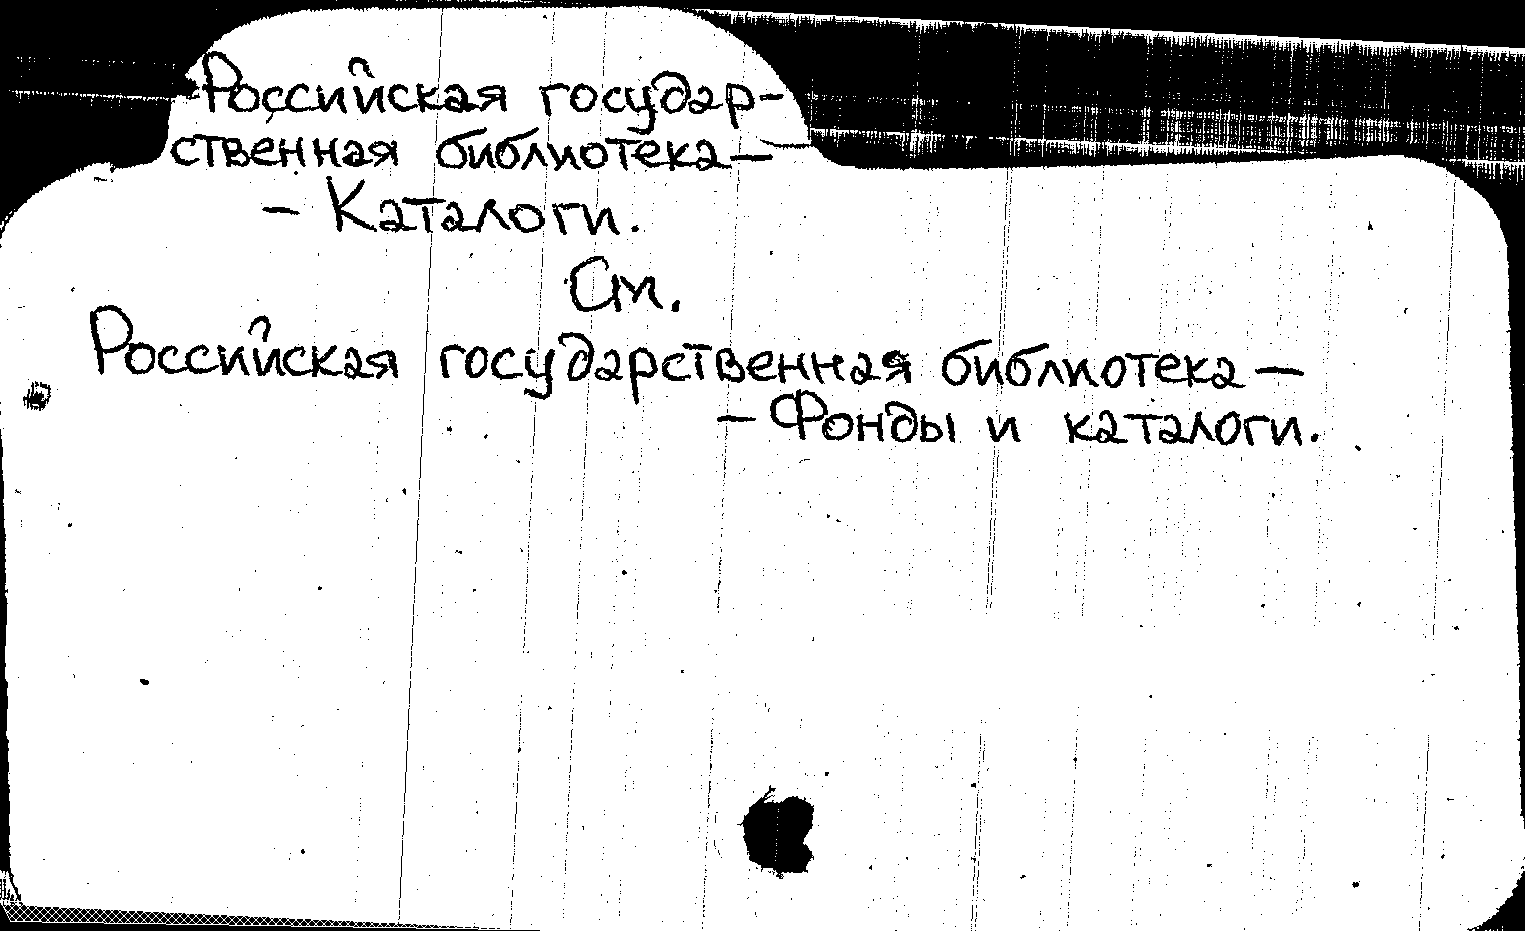 Российская государ-
ственная библиотека —
— Каталоги.
См.
Российская государственная библиотека —
— Фонды и каталоги.